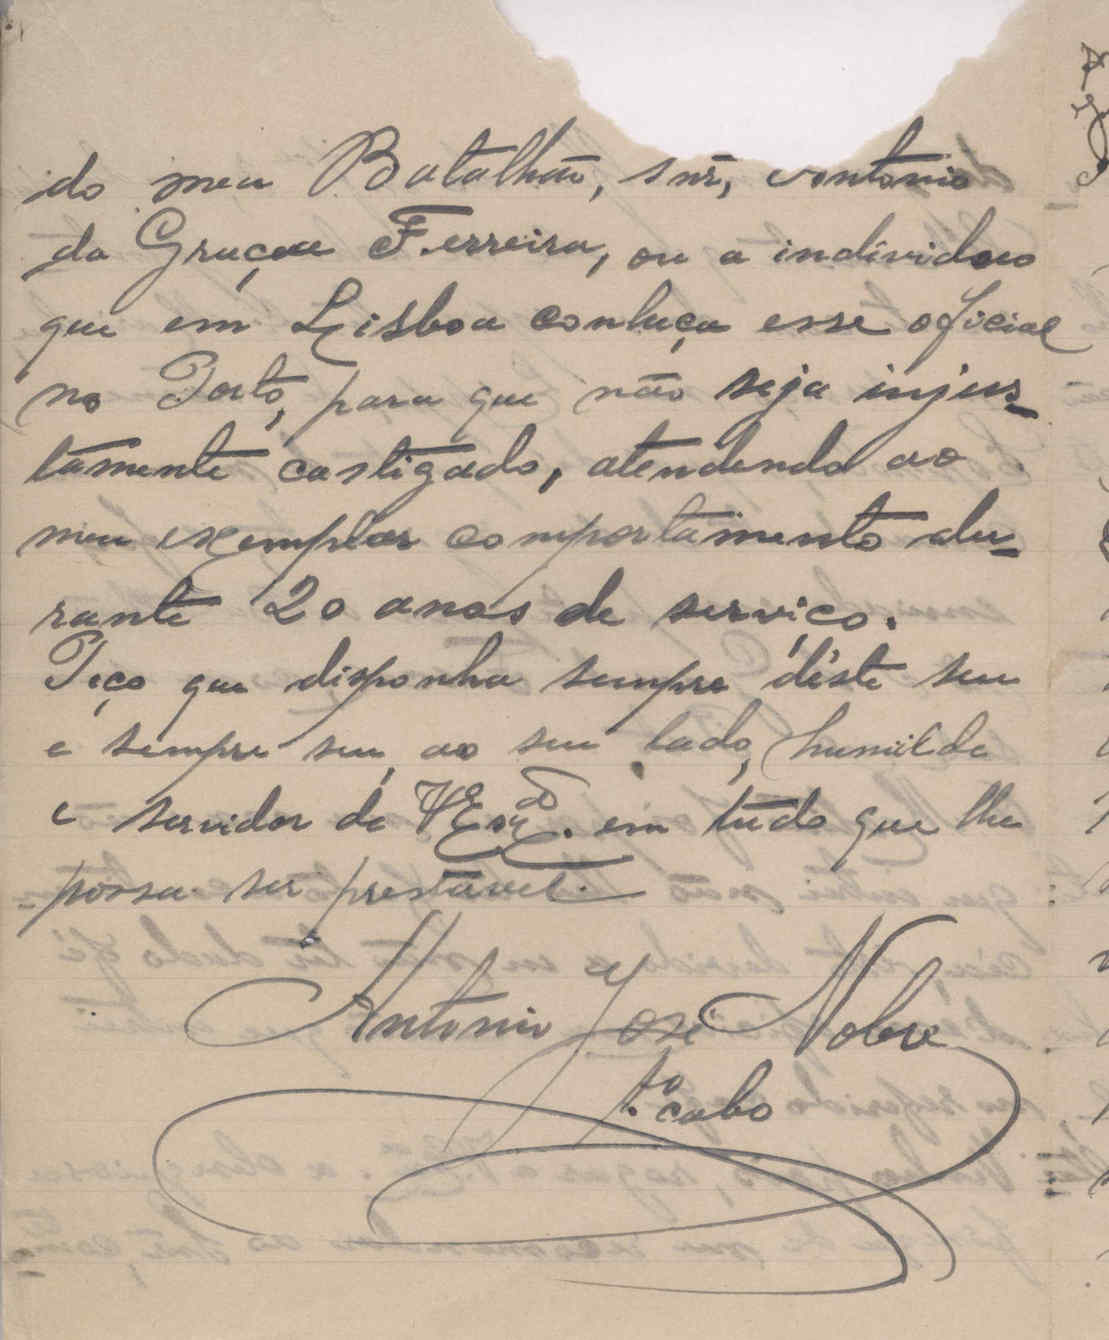 do meu Batalhão, snr, Antonio
da Graça Ferreira, ou a individuo
que em Lisboa conheça esse oficial
no Porto, para que não seja injus-
tamente castigado, atendendo ao
meu exemplar comportamento du-
rante 20 anos de serviço.
Peço que disponha sempre dêste seu
e sempre seu, ao seu lado, humilde
e servidor de V. Exª. em tudo que lhe
possa ser prestavel.
Antonio José Nobre
1.º cabo